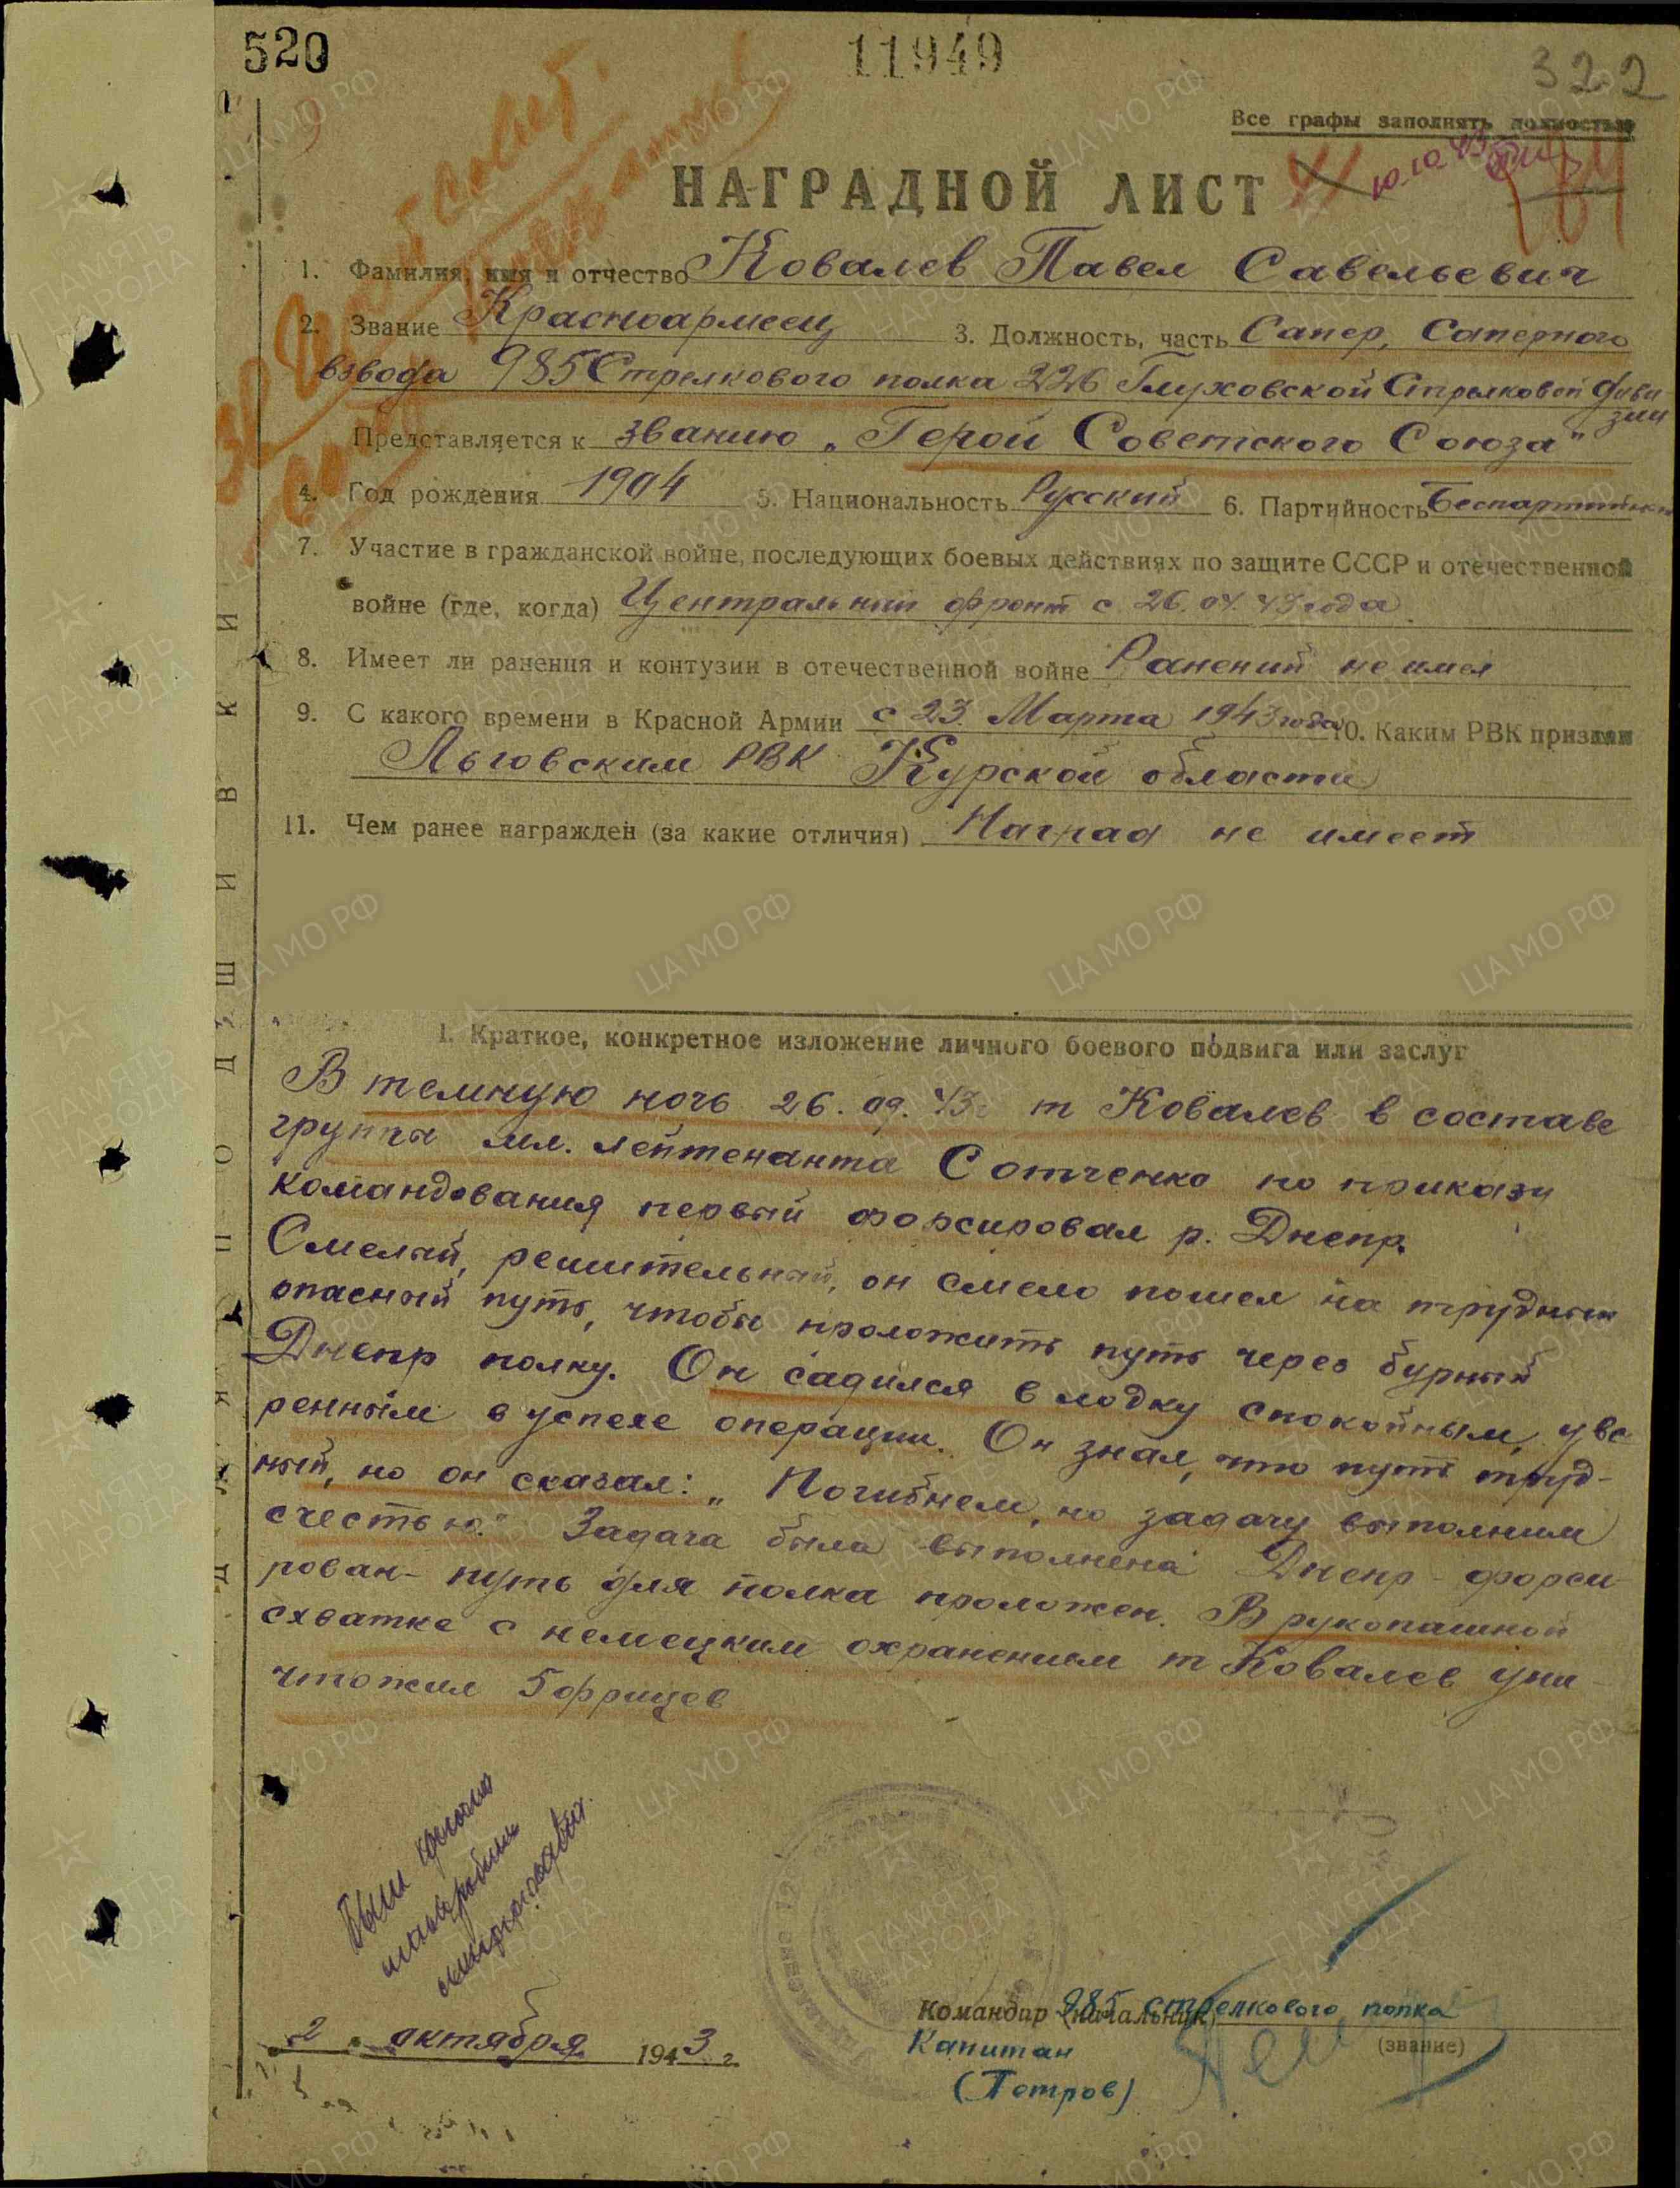 520
11949
322
Все графы заполнять полностью
10.10.43
НАГРАДНОЙ ЛИСТ
1. Фамилия, имя и отчество Ковалев Павел Савельевич
2. Звание Красноармеец 3. Должность, часть Сапер, Саперного
взвода 985 Стрелкового полка 226 Глуховской Стрелковой диви
зии
Представляется к званию „Герой Советского Союза"
4. Год рождения 1904 5. Национальность Русский 6. Партийность Беспартийный
7. Участие в гражданской войне, последующих боевых действиях по защите СССР и отечественной
войне (где, когда) Центральный фронт с 26.04.43 года
8. Имеет ли ранения и контузии в отечественной войне Ранений не имел
9. С какого времени в Красной Армии с 23 Марта 1943 года 10. Каким РВК призван
Льговским РВК Курской области
11. Чем ранее награжден (за какие отличия) Наград не имеет
I. Краткое, конкретное изложение личного боевого подвига или заслуг
В темную ночь 26.09.43г т Ковалев в составе
группы мл. лейтенанта Сотченко по приказу
командования первый форсировал р. Днепр.
Смелый, решительный, он смело пошел на трудный
опасный путь, чтобы проложить путь через бурный
Днепр полку. Он садился в лодку спокойным, уве
ренным в успехе операции. Он знал, что путь труд-
ный, но он сказал: „Погибнем, но задачу выполним
с честью." Задача была выполнена Днепр форси
рован - путь для полка проложен. В рукопашной
схватке с немецким охранением т Ковалев уни
чтожил 5 фрицев
2 октября 1943 г.
Командир (начальник) 985 стрелкового полка
(звание)
Капитан
(Петров)
ДЛЯ ПОДШИВКИ